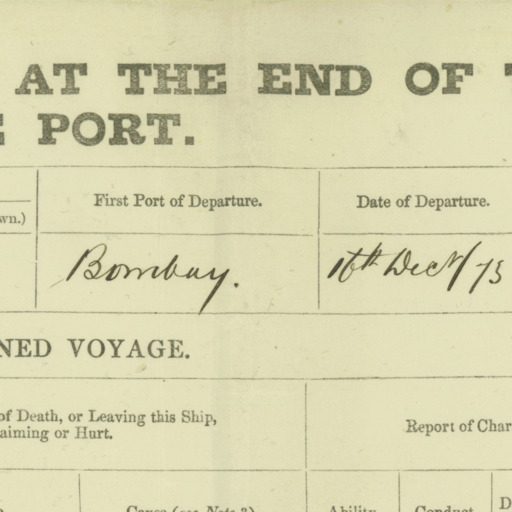 AT THE END OF
PORT.
First Port of Departure.
Date of Departure.
wn.)
Bombay.
16th Decr/75
NED VOYAGE.
of Death, or Leaving this Ship,
aiming or Hurt.
Report of Char
Cause (see Note 3)
Ability
Conduct
D